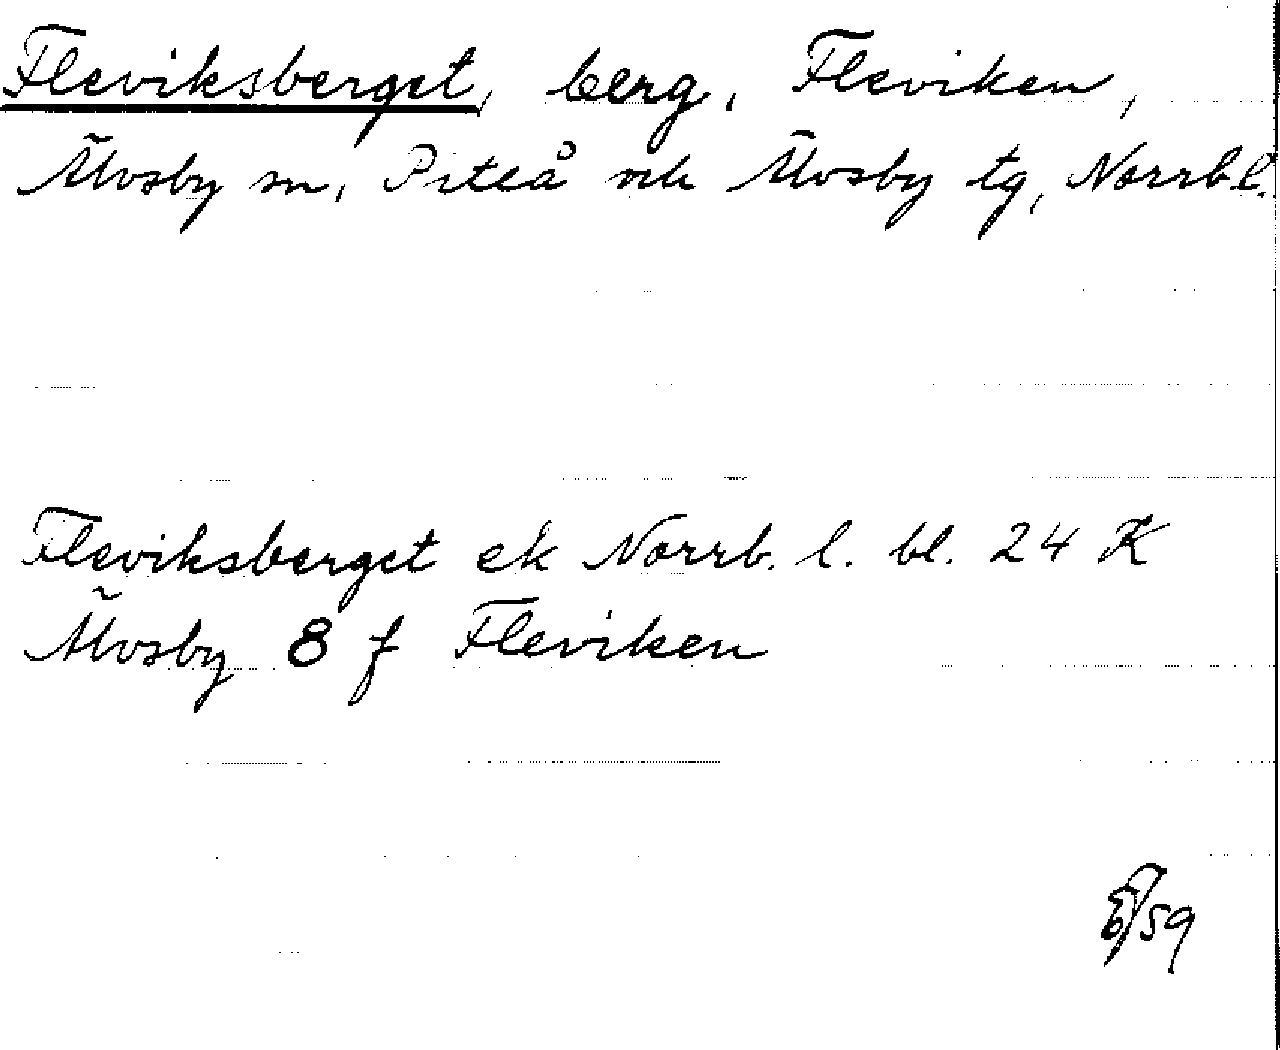 Fleviksberget, berg, Fleviken,
Älvsby sn, Piteå och Älvsby tg, Norrb. l.
Fleviksberget ek Norrb. l. bl. 24 K
Älvsby 8 f Fleviken
/59